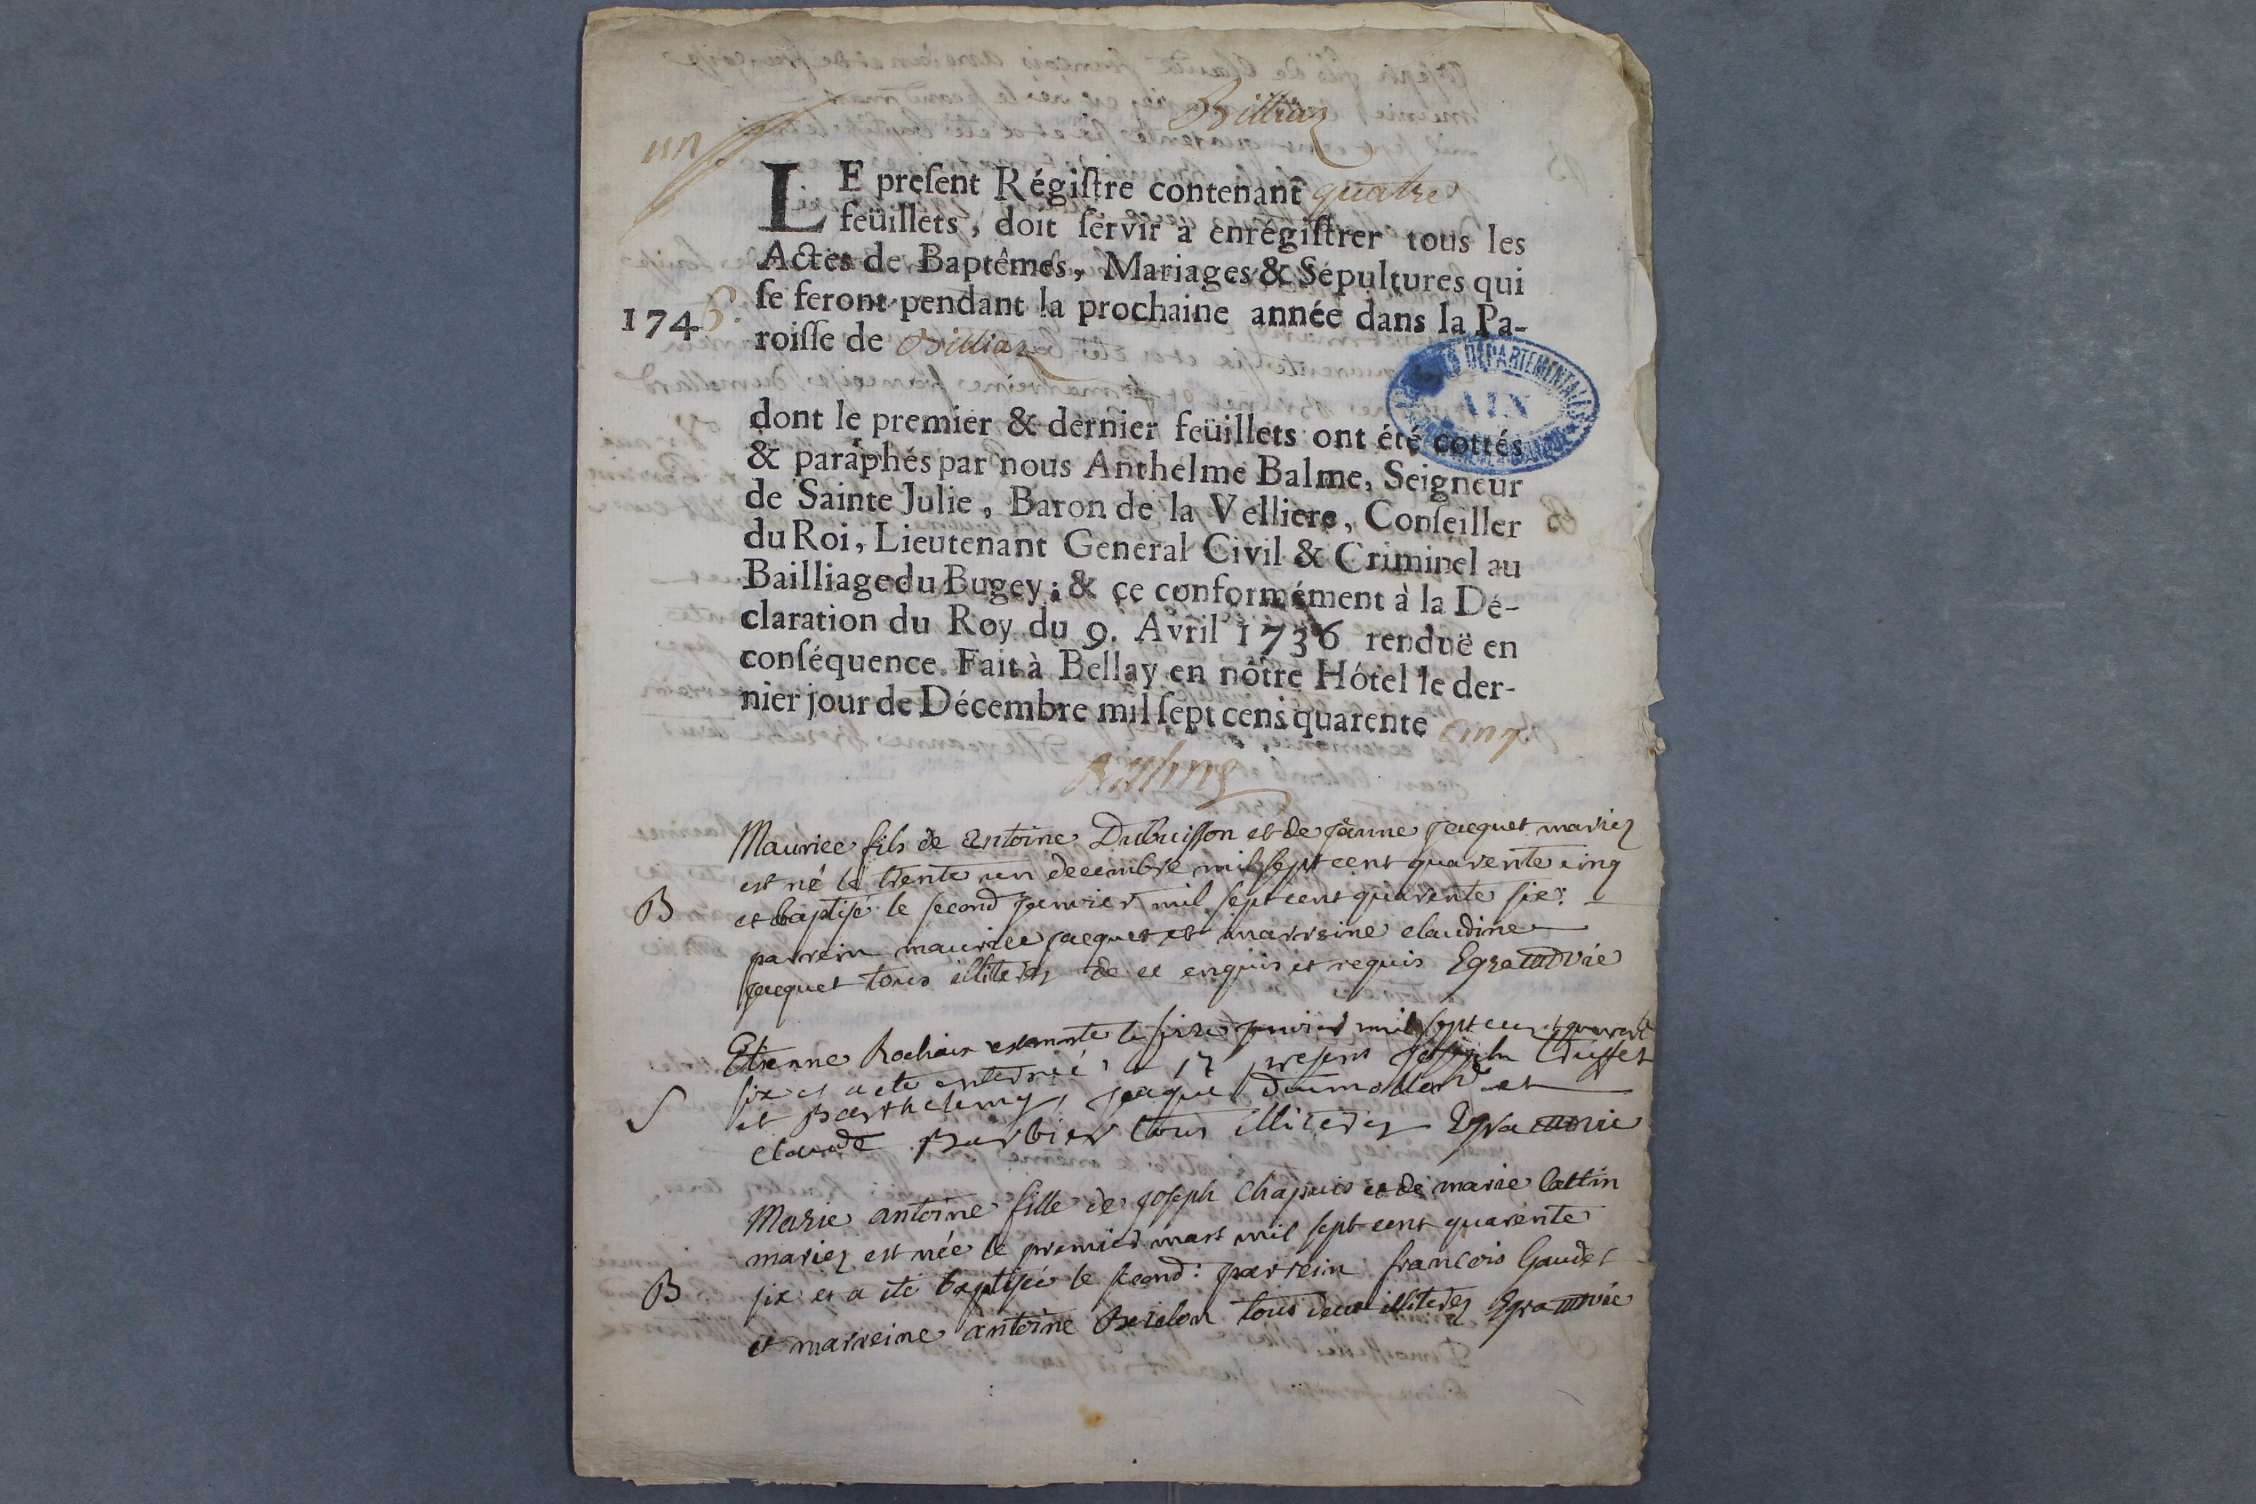 Billiaz
un
LE preſent Régiſtre contenant quatre
feüillets, doit ſervir à enrégiſtrer tous les
Actes de Baptêmes, Mariages & Sépultures qui
ſe feront pendant la prochaine année dans la Pa-
1746.
roiſſe de Billiaz
ARCHIVES DÉPARTEMENTALES AIN
dont le premier & dernier feüillets ont été cottés
& paraphés par nous Anthelme Balme, Seigneur
de Sainte Julie, Baron de la Velliere, Conſeiller
du Roi, Lieutenant General Civil & Criminel au
Bailliage du Bugey; & ce conformément à la Dé-
claration du Roy du 9. Avril 1736 renduë en
conſéquence. Fait à Bellay en nôtre Hôtel le der-
nier jour de Décembre mil ſept cens quarente cinq
Balme
Maurice fils de Antoine Dubuisson et de Jeanne Jacquet mariez
est né le trente un decembre mil sept cent quarente cinq
B et baptisé le second janvier mil sept cent quarente six:
parrein maurice jacquet et marreine claudine
jacquet tous illiterez de ce enquis et requis
Etienne Rochaix est mort le janvier mil sept cent quarente
six et a ete enterré le 17 presens Joseph
S et Barthelemy, jaque Dumollard et
claude Barbier tous illiterez
Marie antoine fille de joseph Chapuis et de marie Cattin
mariez est née le premier mars mil sept cent quarente
B six et a ete baptisée le second: parrein francois Gaudet
et marreine antoine Berelon tous deux illiterez